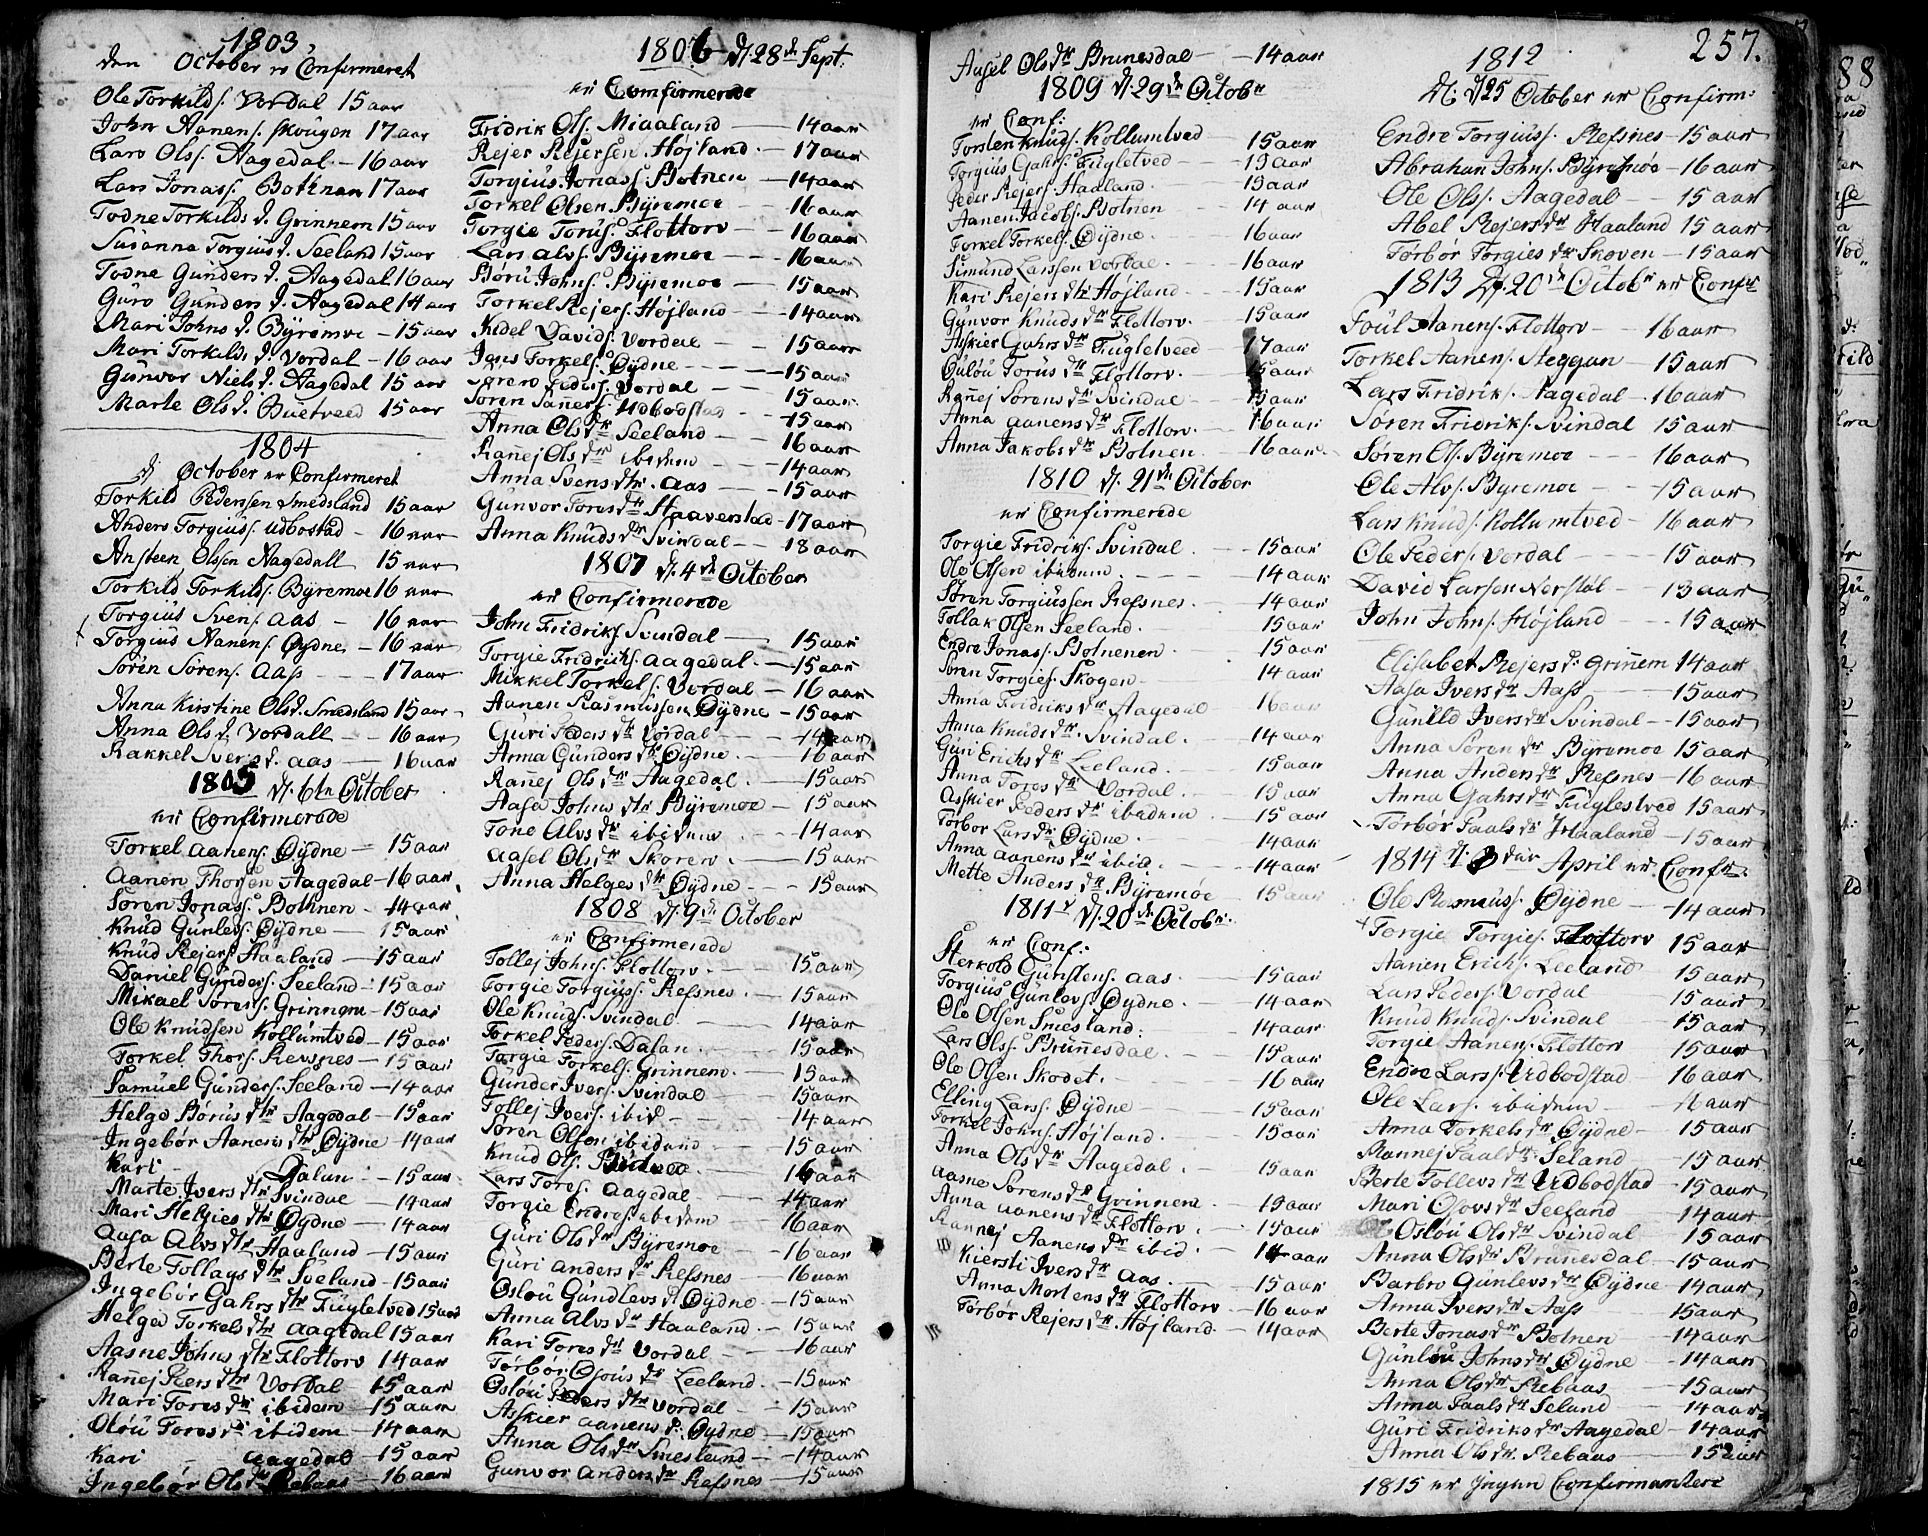 1803,
den October er Confirmeret
Ole Torkilds. Vordal 15 aar
John Aanens. Skougen 17 aar
Lars Ols. Aagedal - 16 aar
Lars Jonas. Bothnan 17 aar
Todne Torkilds d. Grinnem 15 aar
Susanna Torgius d. Seeland 15 aar
Todne Gunders d. Aagedal 16 aar
Guro Gunders d. Aagedal 14 aar
Mari Johns d. Byremoe - 15 aar
Mari Torkilds d. Vordal - 16 aar
Gunvor Niels d. Aagedal 15 aar
Marte Ols d. Buetveed 15 aar
1804
d. October er Confirmeret
Torkild Pedersen Smedsland 15 aar
Anders Torgius. Udbostad - 16 aar
Ansteen Olssen Aagedall 15 aar
Torkild Torkilds. Byremoe 16 aar
Torgius Svens. Aas - 16 aar
Torgius Aanens. Øydne - 16 aar
Søren Sørens. Aas - 17 aar
Anna Kirstine Ols d. Smedsland 15 aar
Anna Ols d. Vordall - 16 aar
Rakkel Ivers d. Aas - 16 aar
1805 d. 6te October
er Confirmerede
Torkel Aanens. Øydne - 15 aar
Aanen Thorsen Aagedal - 16 aar
Søren Jonas. Bothnen - 14 aar
Knud Gunlevs. Øydne - 15 aar
Knud Rejers. Haaland - 15 aar
Daniel Gunders. Seeland - 15 aar
Mikael Tores. Grinnem - 15 aar
Ole Knudsen Kollumtved - 15 aar
Torkel Thors. Revsnes - 15 aar
Samuel Gunders. Seeland - 14 aar
Helge Børus dtr Aagedal - 15 aar
Ingebor Aanens dtr Øydne - 14 aar
Kari - Dalan - 15 aar
Marte Ivers dtr Svindal - 14 aar
Mari Helgies dtr Øydne - 14 aar
Aasa Alvs dtr Haaland - 15 aar
Berte Tollags dtr Sveland - 15 aar
Ingebør Gahrs dtr Fugletved 15 aar
Helga Torkels dtr Aagedal 15 aar
Aasne Johns dtr Flottorv 14 aar
Rannej Peers dtr Vordal - 15 aar
Mari Tores dtr ibidem - 15 aar
Olou Tores dtr ibidem - 14 aar
Kari - Aagedal - 15 aar
Ingebør Ols dtr Rebaas - 16 aar
1806 d. 28de Sept.
er Confirmerede
Fridrik Ols. Miaaland - 14 aar
Rejer Rejersen Højland - 17 aar
Torgius Jonas. Botnen - 14 aar
Torkel Olsen Byremoe - 16 aar
Torgie Torius. Flottorv - 16 aar
Lars Alvs. Byremoe - 16 aar
Børu Johns. Byremoe - 15 aar
Torkel Rejers. Højland - 14 aar
Kidel Davids. Vordal - 15 aar
Jens Torkels. Øydne - 15 aar
Søren Peders. Vordal - 15 aar
Søren Sanners. Udbodstad - 15 aar
Anna Ols dtr Seeland - 16 aar
Ranej Ols dtr ibidem - 14 aar
Anna Svens dtr. Aas - 15 aar
Gunvor Tores dtr Staaverstad - 17 aar
Anna Knuds dtr Svindal - 18 aar
1807 d. 4de October
er Confirmerede
John Fridriks Svindal - 15 aar
Torgie Fridriks. Aagedal - 15 aar
Mikkel Torkels. Vordal - 16 aar
Aanen Rasmussen Øydne - 15 aar
Guri Peders dtr Vordal - 14 aar
Anna Gunders dtr Øydne - 16 aar
Ranej Ols dtr Aagedal - 15 aar
Aasa Johns dtr Byremoe - 15 aar
Tone Alvs dtr ibidem - 14 aar
Aasel Ols dtr Skoren - 15 aar
Anna Helges dtr Øydne - 15 aar
1808 d. 9de October
er Confirmerede
Tollej Johns. Flottorv - 15 aar
Torgie Torgius. Refsnes - 15 aar
Ole Knuds. Svindal - 14 aar
Torkel Peders. Dalan - 15 aar
Torgie Torkels. Grinnem - 15 aar
Gunder Ivers. Svindal - 15 aar
Tollej Ivers. ibid - 14 aar
Søren Olsen ibidem - 15 aar
Knud Ols. - 16 aar
Lars Tores. Aagedal - 14 aar
Torgie Endres. ibidem - 16 aar
Guri Ols dtr Byremoe - 16 aar
Guri Anders dtr Refsnes - 16 aar
Oslou Gundlevs d. Øydne - 15 aar
Anna Alvs dtr Haaland - 15 aar
Kari Tores dtr Vordal - 16 aar
Tørbør Osous dtr Leeland - 15 aar
Oslou Peders dtr Vordal - 15 aar
Askier Aanens d. Øydne - 15 aar
Anna Ols dtr Smesland - 14 aar
Gunvor Anders dtr Refsnes - 15 aar
257.
Aasel Ols dtr Brunesdal - 14 aar
1809 d. 29de Octobr
er Conf:
Torsten Knuds. Kollumtved - 15 aar
Torgius Gahrs. Fugletved - 15 aar
Peder Rejers. Haaland - 15 aar
Aanen Jacobs. Botnen - 14 aar
Torkel Torkels. Øydne - 16 aar
Simund Larssen Vordal - 16 aar
Kari Rejers dtr Højland - 15 aar
Gunvor Knuds dtr Flottorv - 15 aar
Askier Gahrs dtr Fugletveed - 17 aar
Oulou Torus dtr Flottorv - 15 aar
Ranej Sørens dtr Svindal - 15 aar
Anna Aanens dtr Flottorv - 16 aar
Anna Jakobs dtr Botnen - 16 aar
1810 d. 21de October
er Confirmerede
Torgie Fridriks. Svindal - 15 aar
Ole Olsen ibidem - 14 aar
Søren Torgiussen Refsnes - 14 aar
Tollak Olsen Seeland - 15 aar
Endre Jonas. Botnenen - 15 aar
Søren Torgies. Skogen - 14 aar
Anna Fridriks dtr Aagedal - 16 aar
Anna Knuds dtr Svindal - 14 aar
Guri Erichs dtr Leeland - 15 aar
Anna Tores dtr Vordal - 15 aar
Asskier Peders dtr ibidem - 15 aar
Tørbor Lars dtr Øydne - 14 aar
Anna Aanens dtr ibid. - 14 aar
Mette Anders dtr Byremoe - 15 aar
1811 d. 20de Octobr.
er Conf:
Sterkold Gunstens. Aas - 15 aar
Torgius Gunlevs. Øydne - 14 aar
Ole Olsen Smesland - 14 aar
Lars Ols. Brunesdal - 15 aar
Ole Olsen Skodet - 16 aar
Elling Lars. Øydne - 15 aar
Torkel Johns. Højland - 15 aar
Anna Ols dtr Aagedal - 15 aar
Aasne Sørens dtr Grinnem - 15 aar
Anna Aanens dtr Flottorv - 15 aar
Rannej Aanens dtr ibid. - 14 aar
Kiersti Ivers dtr Aas - 15 aar
Anna Mortens dtr Flottorv - 16 aar
Tørbør Rejers dtr Højland - 14 aar
1812
d. 25 October er Confirm:
Endre Torgius. Refsnes - 15 aar
Abrahan Johns. Byremoe - 16 aar
Ole Ols. Aagedal - 15 aar
Abel Rejers dtr Haaland 15 aar
Tørbør Torgies dtr Skoven - 15 aar
1813 d. 20de Octobr er Confir
Poul Aanens. Flottorv - 16 aar
Torkel Aanens. Aeggan - 15 aar
Lars Fridriks. Aagedal - 16 aar
Søren Fridriks. Svindal 15 aar
Søren Ols. Byremoe - 16 aar
Ole Alvs. Byremoe - 15 aar
Lars Knuds. Kollumtved - 16 aar
Ole Peders. Vordal - 15 aar
David Larsen Nerstøl - 13 aar
John Johns. Højland - 15 aar
Elisabet Rejers d. Grinem 14 aar
Aasa Ivers dtr Aas - 15 aar
Gunild Ivers dtr Svindal - 15 aar
Anna Søren dtr Byremoe 15 aar
Anna Anders dtr Refsnes - 16 aar
Anna Gahrs dtr Fuglestved 15 aar
Tørbør Paals dtr Haaland - 15 aar
1814 d. 3die April er Confir.
Ole Rasmus. Øydne - 14 aar
Torgie Torgies. Flottorv 15 aar
Aanen Erichs. Leeland 15 aar
Lars Peders. Vordal 15 aar
Knud Knuds. Svindal 15 aar
Torgie Aanens. Flottorv 15 aar
Endre Lars. Udbodstad 16 aar
Ole Lars. ibidem - aar
Anna Torkels dtr Øydne - 15 aar
Rannej Paals dtr Seland - 15 aar
Berte Tollevs dtr Udbodstad - 15 aar
Mari Olovs dtr Seeland - 14 aar
Oslou Ols dtr Svindal - 15 aar
Anna Ols dtr Brunesdal - 15 aar
Barbro Gunlevs dtr Øydne - 14 aar
Anna Ivers dtr Aas - 15 aar
Berte Jonas dtr Botnen - 14 aar
Gunlou Johns dtr Øydne - 14 aar
Anna Ols dtr Rebaas - 15 aar
Anna Paals dtr Seland - 14 aar
Guri Fridriks dtr Aagedal - 14 aar
Anna Ols dtr Rebaas - 15 aar
1815 er Ingen Confirmantere
88